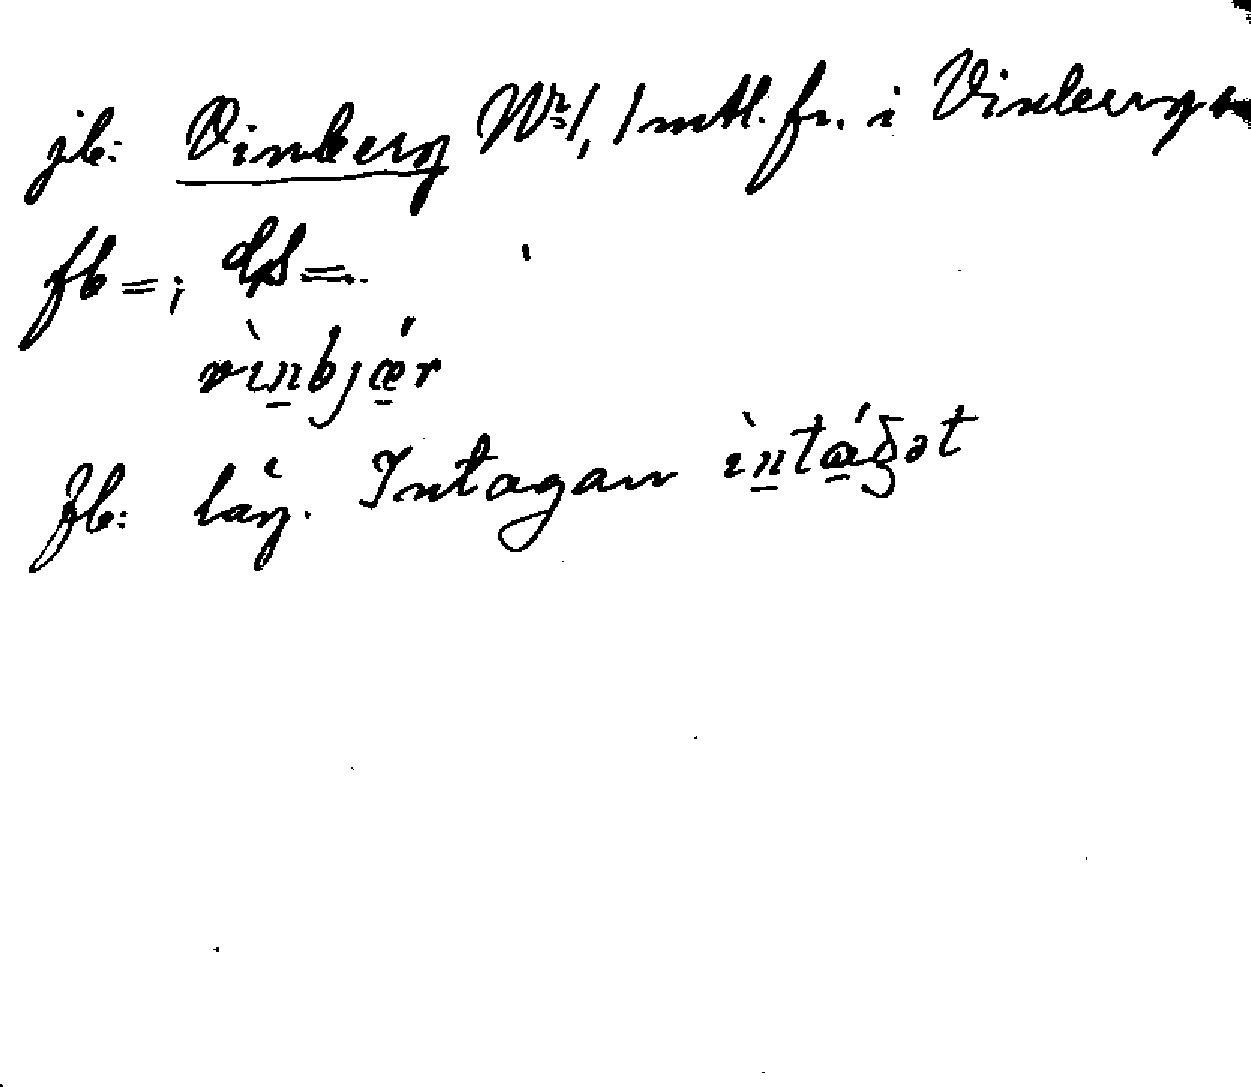 jb: Vinberg Nr 1, 1 mtl. fr. i Vinbergs
fb =; GS =.
vìnbjǽr
fb: läg. Intagan ìntágət